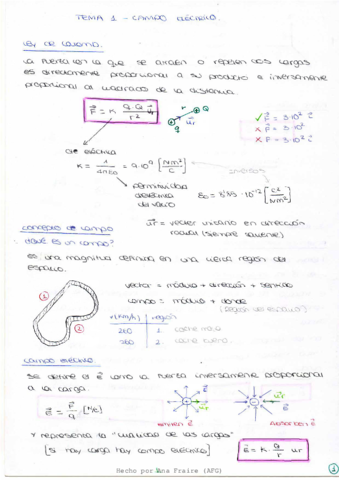 TEMA 1 - CAMPO ELÉCTRICO.
LEY DE COULOMB.
La fuerza con la que se atraen o repelen dos cargas
es directamente proporcional a su producto e inversamente
proporcional al cuadrado de la distancia.
F = K Q·q / r² ur
r
Q
q
ur
✓ F = 3·10² i
✗ F = 3·10²
✗ F = 3·10² i
cte eléctrica
K = 1 / 4πε0 = 9·10⁹ [Nm² / C]
unidades
permitividad
dieléctrica
del vacío
ε0 = 8'85 · 10⁻¹² [C² / Nm²]
ur = vector unitario en dirección
radial (siempre saliente)
CONCEPTO DE CAMPO
¿Qué es un campo?
Es una magnitud definida en una cierta región del
espacio.
vector = módulo + dirección + sentido
campo = módulo + donde
(región del espacio)
v (km/h) | región
260 | 1.
360 | 2.
1
2
CAMPO ELÉCTRICO
Se define el E como la fuerza inversamente proporcional
a la carga.
E = F / q [N/C]
E
ur
E
ur
Y representa la "maldad de las cargas"
[Si hay carga hay campo eléctrico]
E = K q / r ur
Hecho por Ana Fraire (AFG)
1